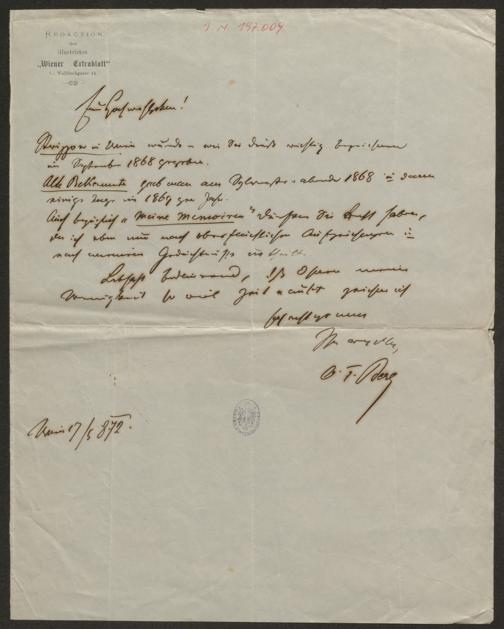 I. N. 197.009
REDACTION
des
illustrirten
„Wiener Extrablatt“
I., Wallfischgasse 11.
Euer Hochwohlgeboren!
in Wien wurde – wie Sie richtig
im September 1868 gegeben.
Alte Bekannte gab man am Sylvester-abende 1868 & dann
einige Tage in 1869 zur
Auch bezüglich „meine Memoiren“ dürften Sie Recht haben,
da ich eben nur nach oberflächlichen Aufzeichnungen &
nach meinem Gedächtnisse
Lebhaft bedauernd, daß Ihnen meine
Wenigkeit so viel Zeit raubt zeichne ich
hochachtungsvoll
Ihr ergebener
O. F. Berg
Wien 17/5 872.